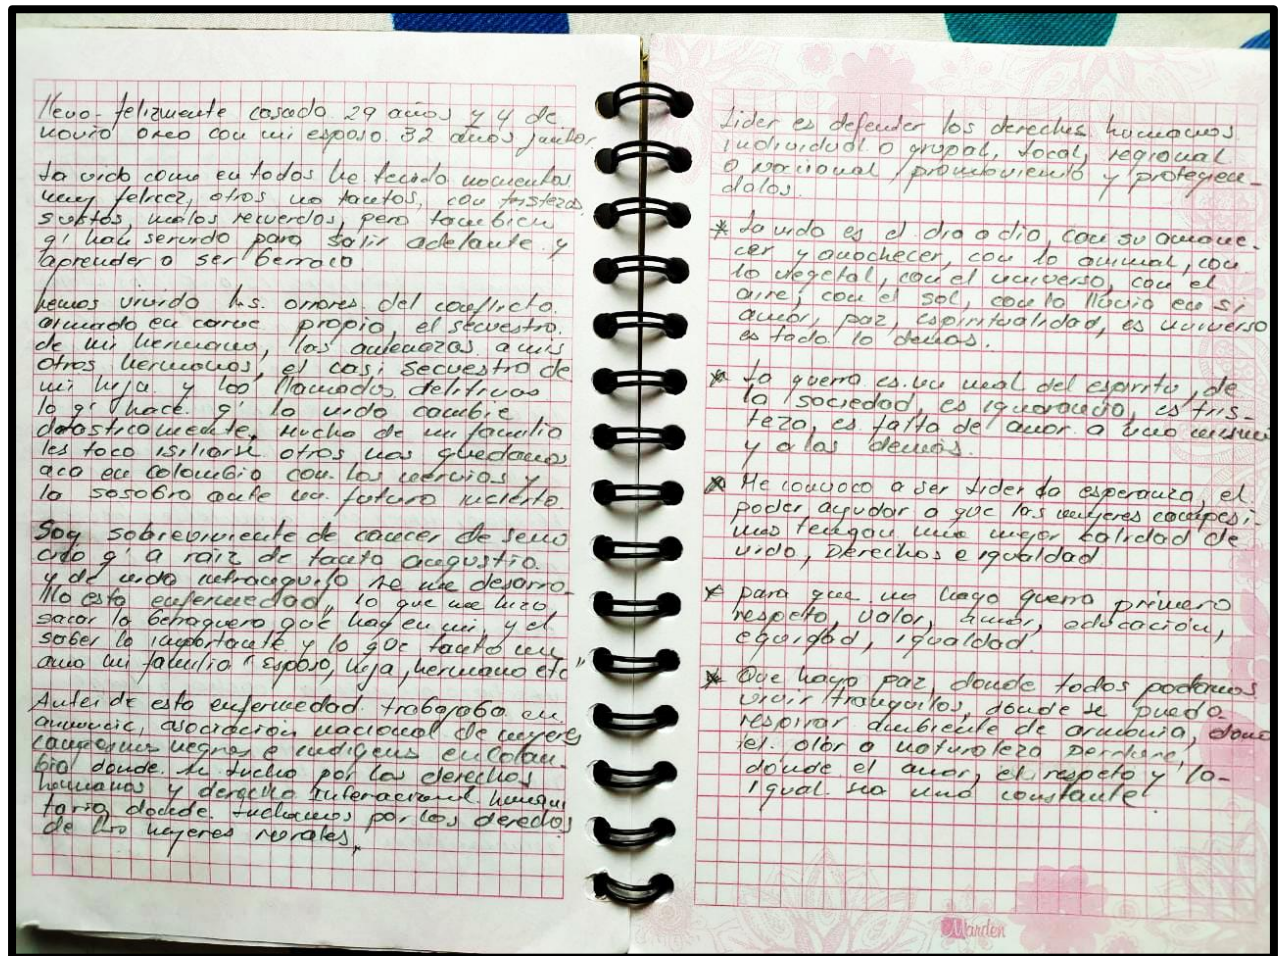 llevo felizmente casada 29 años y 4 de
novio osea con mi esposo 32 años juntos.
La vida como en todos he tenido momentos
muy felices, otros no tantos, con tristezas,
sustos, malos recuerdos, pero tambien
q' han servido para salir adelante y
aprender a ser berraca
hemos vivido los orrores del conflicto
armado en carne propia, el secuestro
de mi hermano, las amenazas a mis
otros hermanos, el casi secuestro de
mi hija y los llamados delitivas
lo q' hace q' la vida cambie
drasticamente. Mucho de mi familia
les toco isiliarse otros nos quedamos
aca en Colombia con los nervios y
la sosobra ante un futuro incierto.
Soy sobreviviente de cancer de seno
creo q' a raiz de tanta angustia
y de vida intranquila se me desarro-
llo esta enfermedad, lo que me hizo,
sacar la beraquera que hay en mi, y el
saber lo importante y lo que tanto me
ama mi familia "Esposo, hija, hermano etc"
Antes de esta enfermedad trabajaba en
anmucic, asociación nacional de mujeres
campesinas negras e indigenas en Colom-
bia donde se lucha por los derechos
humanos y derecho internacional humani
tario, donde luchamos por los derechos
de las mujeres rurales.
Lider es defender los derechos humanos
individual o grupal, local, regional
o nacional, promoviendo y protegien-
dolos.
* La vida es el dia a dia, con su amane-
cer y anochecer, con lo animal, con
lo vegetal, con el universo, con el
aire, con el sol, con la lluvia en si
amor, paz, espiritualidad, es universo
es todo lo demas.
* La guerra es un mal del espiritu, de
la sociedad, es ignorancia, es tris-
teza, es falta del amor a uno mismo
y a los demas.
* Me convoco a ser lider la esperanza, el
poder ayudar a que las mujeres campesi-
nas tengan una mejor calidad de
vida, Derechos e igualdad
* para que no haya guerra primero
respeto, valor, amor, educación,
equidad, igualdad.
* Que haya paz, donde todos podamos
vivir tranquilos, donde se pueda
respirar ambiente de armonia, donde
el olor a naturaleza
donde el amor, el respeto y lo
igual sea una constante.
Marden